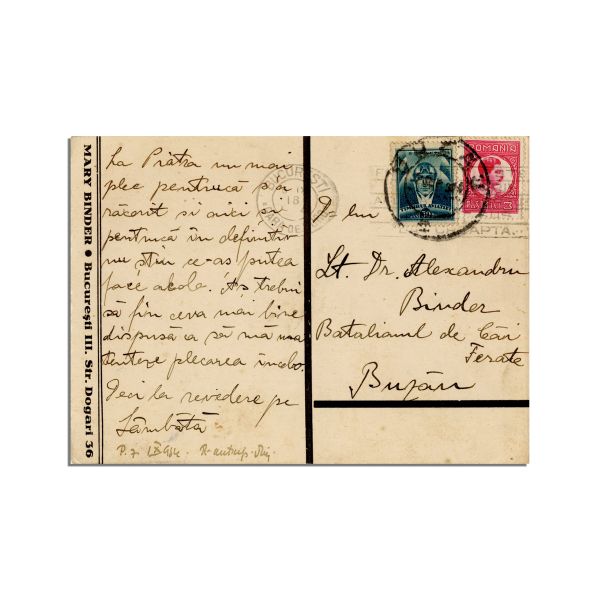 MARY BINDER • București III. Str. Dogari 36
La Piatra nu mai
plec pentrucă s'a
răcorit si aici și
pentrucă în definitiv
nu știu ce-aș putea
face acolo. Aș trebui
să fiu ceva mai bine
dispusă ca să mă
tenteze plecarea încolo.
Deci la revedere pe
Sâmbătă
BUCUREȘTI
18
ROMANIA
3
APTA
Dlui
Lt. Dr. Alexandru
Binder
Batalionul de Căi
Ferate
Buzău